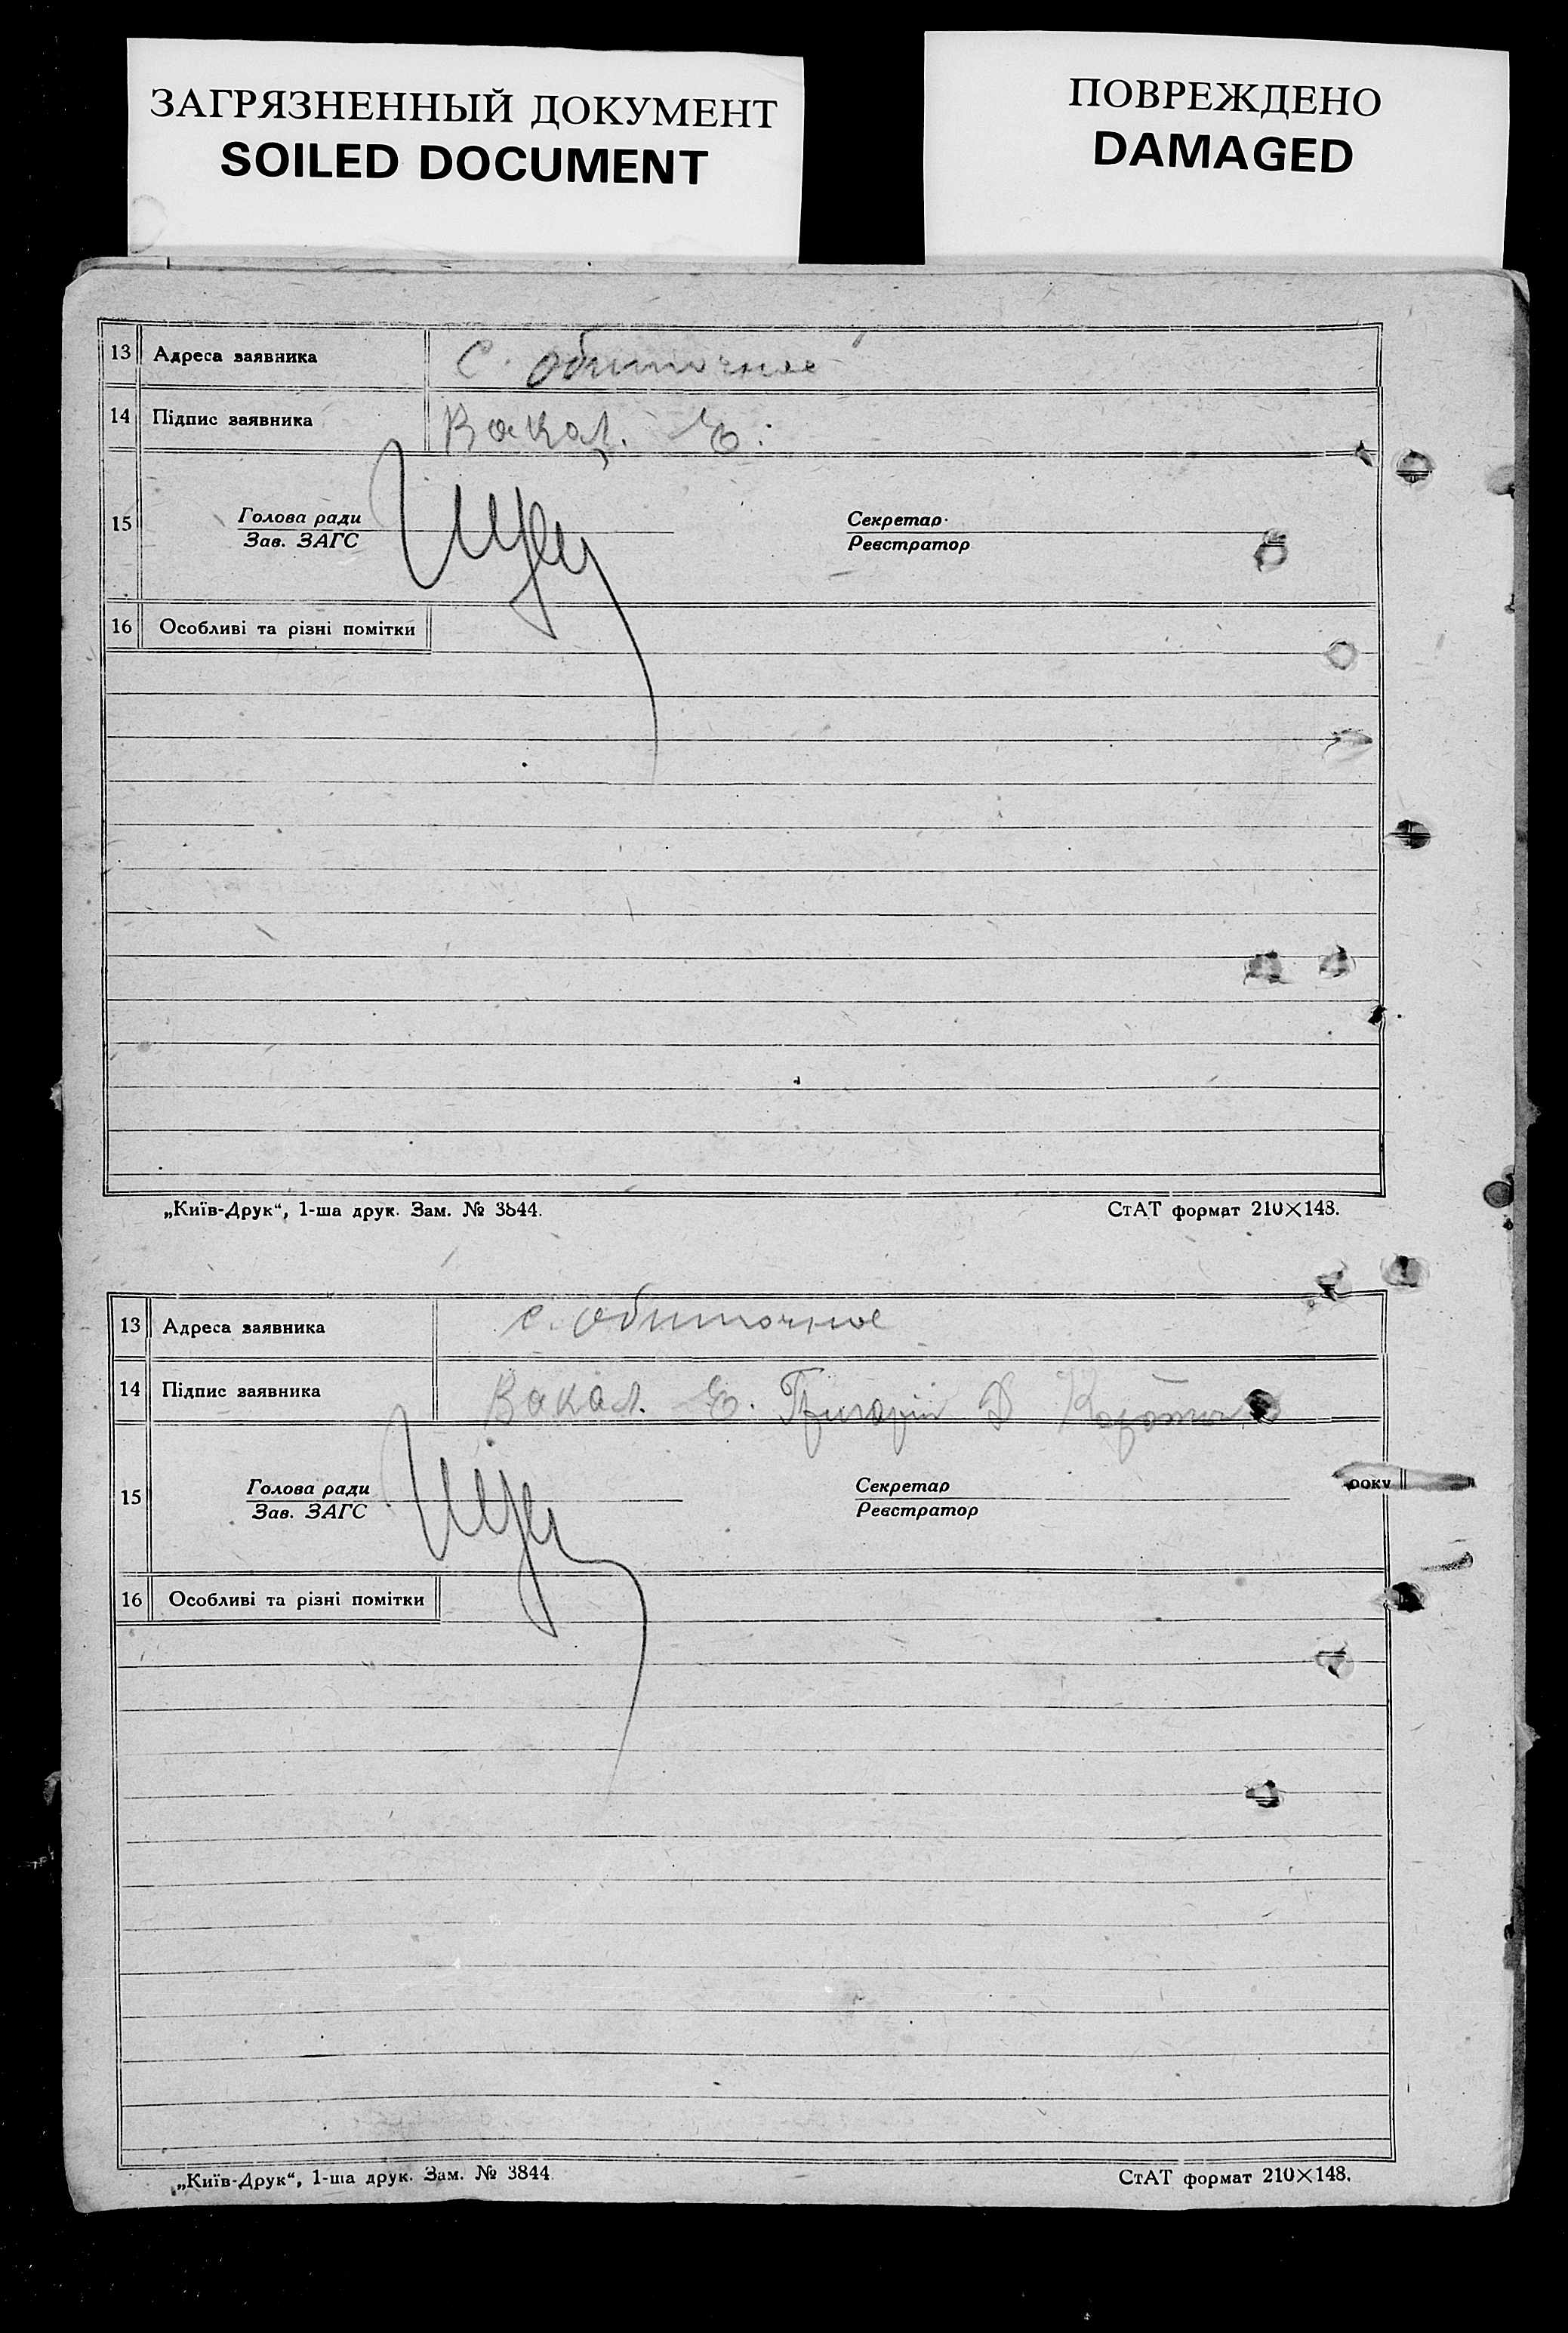 ЗАГРЯЗНЕННЫЙ ДОКУМЕНТ
SOILED DOCUMENT
ПОВРЕЖДЕНО
DAMAGED
13 Адреса заявника с. Обиточное
14 Підпис заявника Вакал. Е.
15 Голова ради Секретар
Зав. ЗАГС Реєстратор
16 Особливі та різні помітки
„Київ-Друк“, 1-ша друк. Зам. № 3844. СтАТ формат 210×148.
13 Адреса заявника с. Обиточное
14 Підпис заявника Вакал. Е. Григорій
15 Голова ради Секретар року
Зав. ЗАГС Реєстратор
16 Особливі та різні помітки
„Київ-Друк“, 1-ша друк. Зам. № 3844 СтАТ формат 210×148.